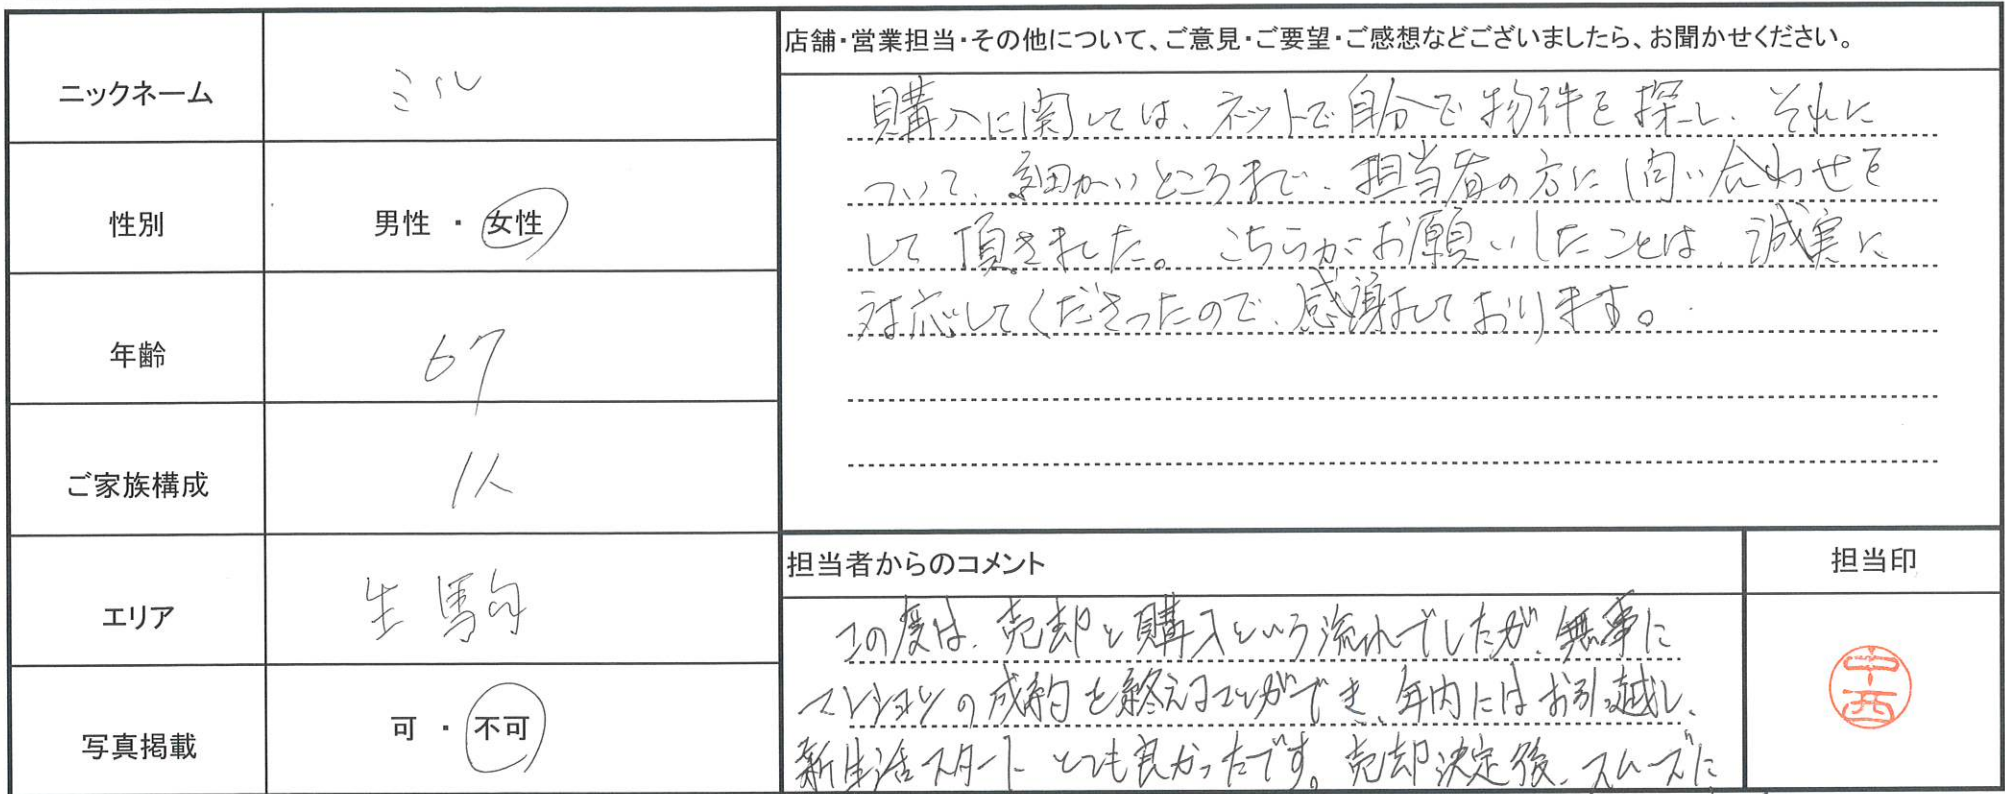 ニックネーム
ミル
性別
男性 ・ 女性
年齢
67
ご家族構成
1人
エリア
生駒
写真掲載
可 ・ 不可
店舗・営業担当・その他について、ご意見・ご要望・ご感想などございましたら、お聞かせください。
購入に関しては、ネットで自分で物件を探し、それに
ついて、細かいところまで、担当者の方に問い合わせを
して頂きました。こちらがお願いしたことは、誠実に
対応してくださったので、感謝しております。
担当者からのコメント
この度は、売却と購入という流れでしたが、無事に
マンションの成約を終えることができ、年内にはお引越し、
新生活スタート とても良かったです。売却決定後、スムーズに
担当印
中西